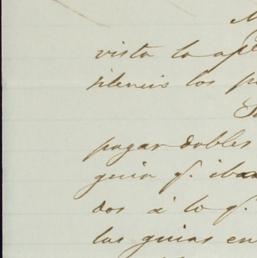 vista la ape
los p
pagar dobles
guia q. iba
dos á lo q.
las guias en